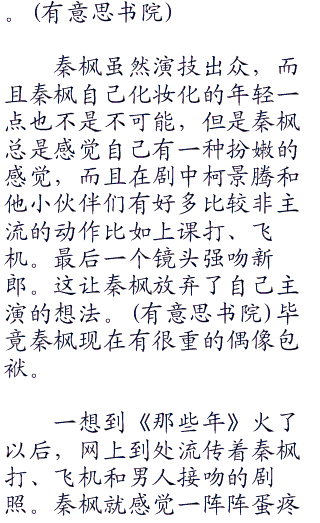 。(有意思书院)
秦枫虽然演技出众，而
且秦枫自己化妆化的年轻一
点也不是不可能，但是秦枫
总是感觉自己有一种扮嫩的
感觉，而且在剧中柯景腾和
他小伙伴们有好多比较非主
流的动作比如上课打、飞
机。最后一个镜头强吻新
郎。这让秦枫放弃了自己主
演的想法。(有意思书院)毕
竟秦枫现在有很重的偶像包
袱。
一想到《那些年》火了
以后，网上到处流传着秦枫
打、飞机和男人接吻的剧
照。秦枫就感觉一阵阵蛋疼